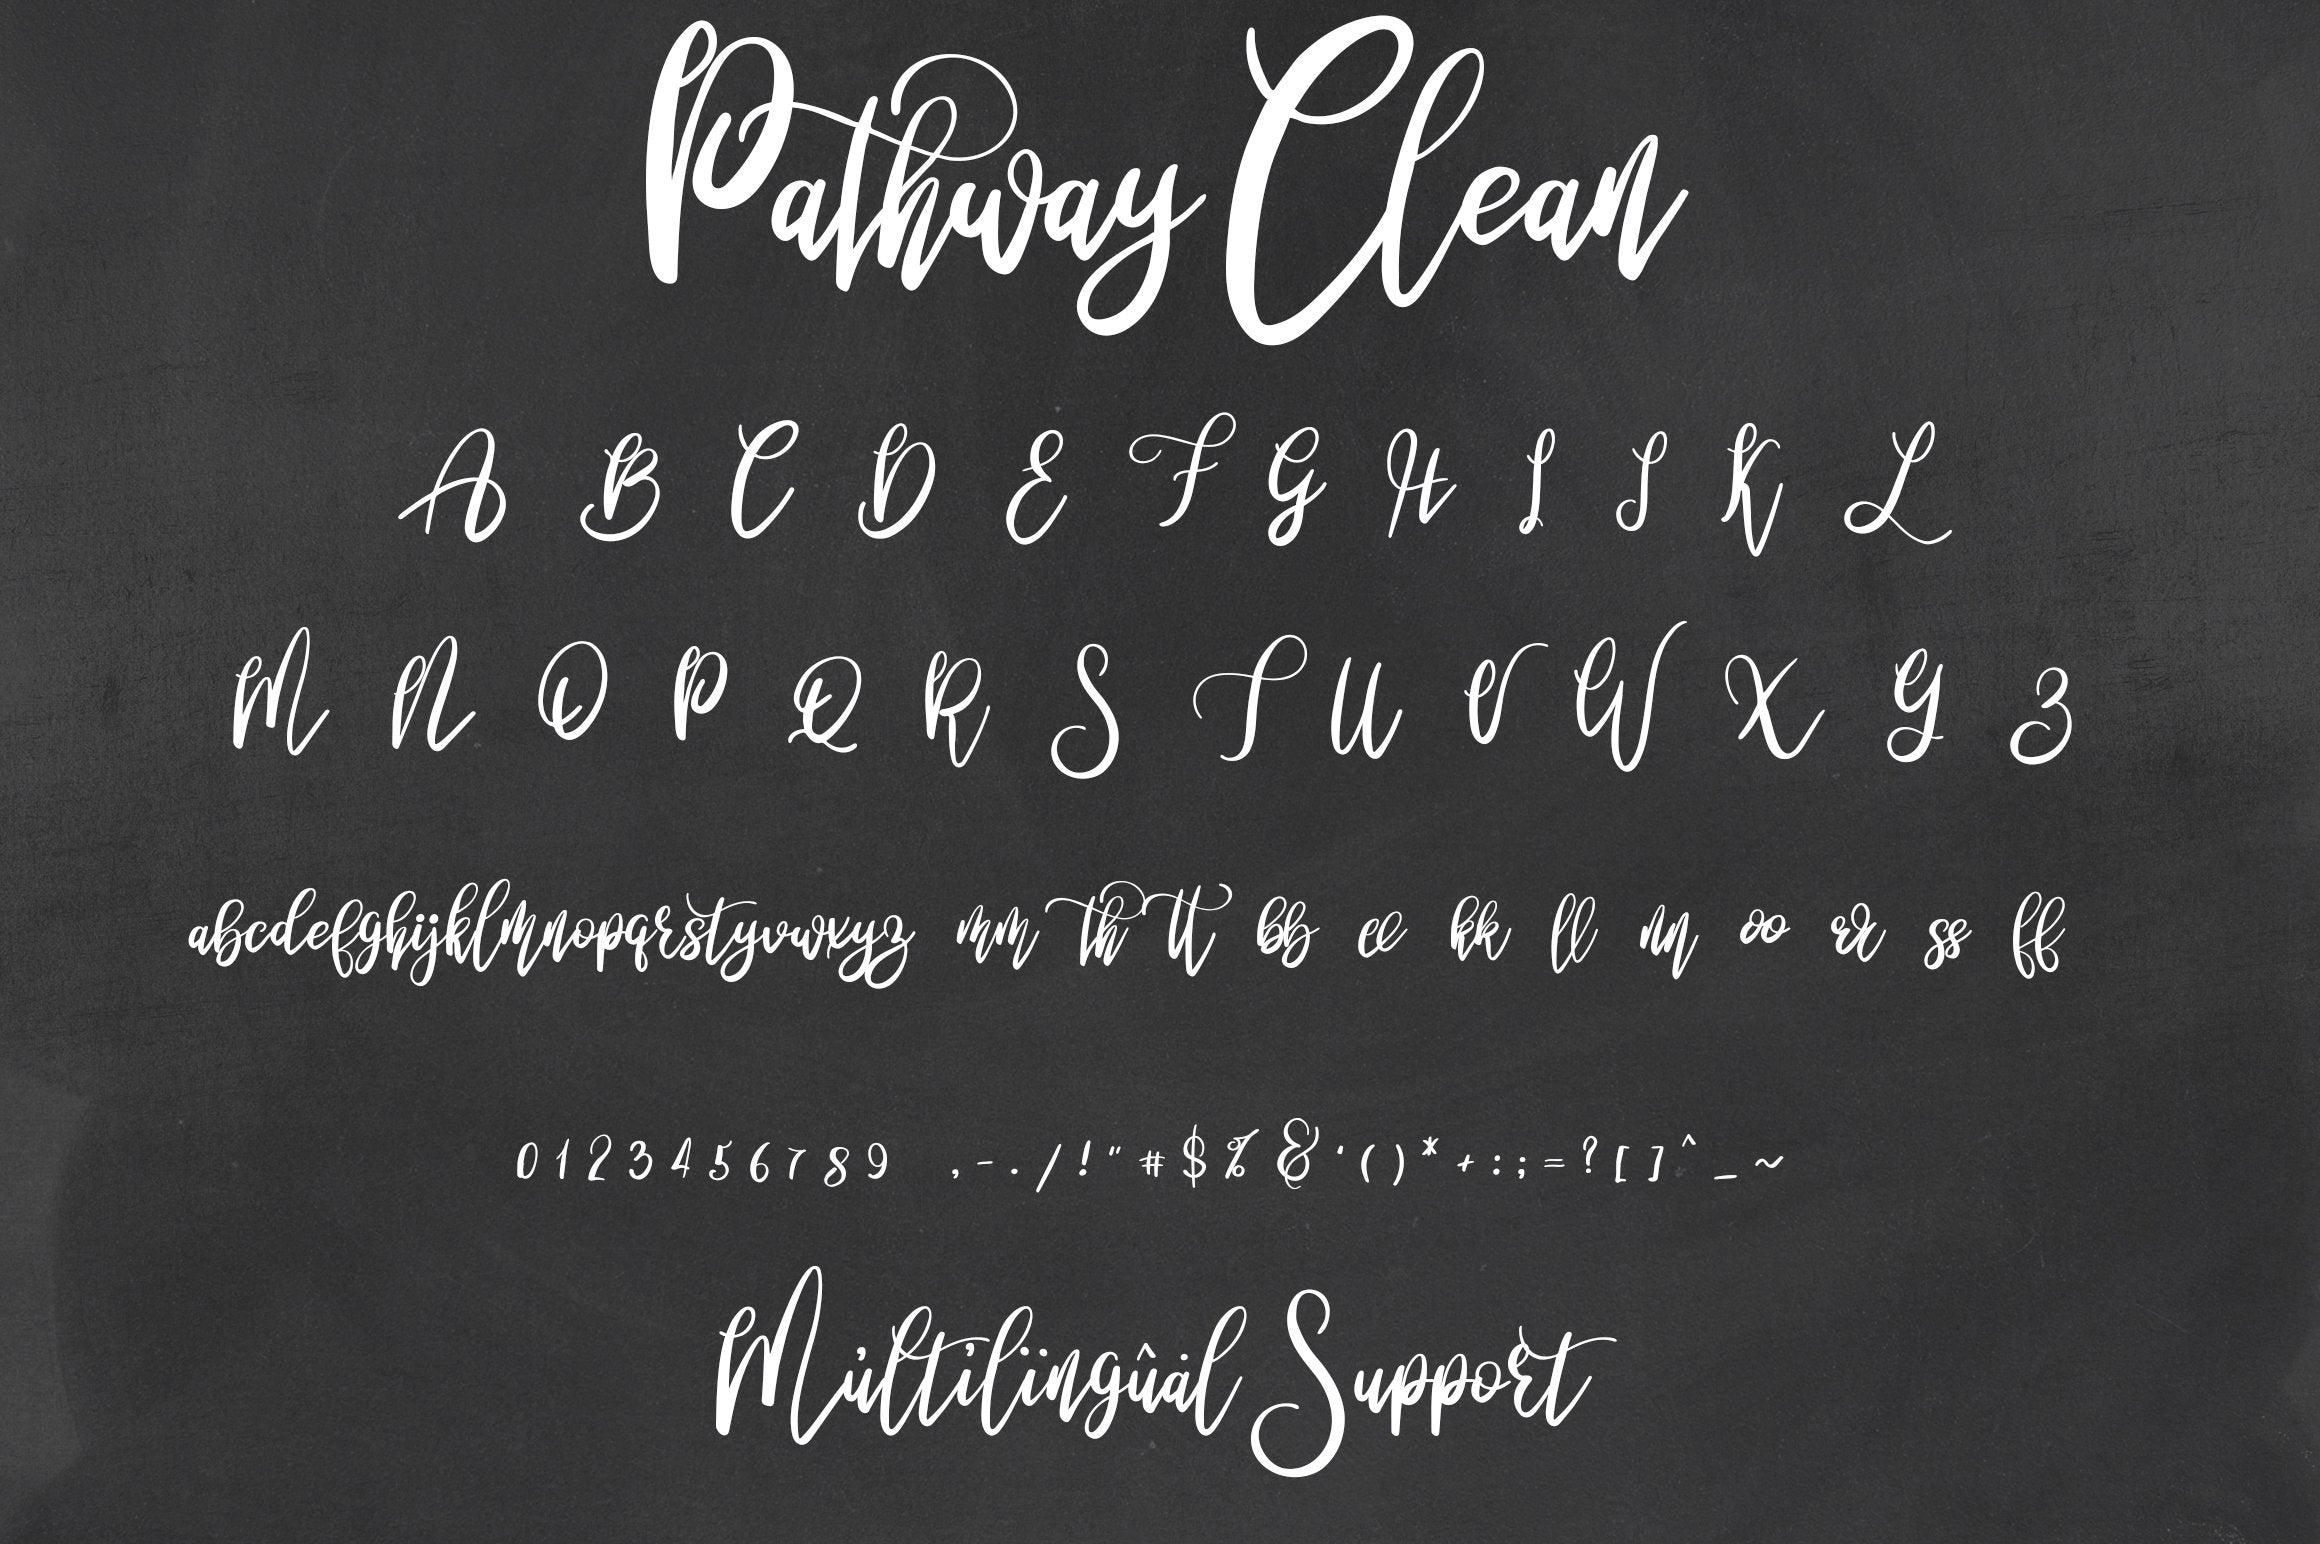 Pathway Clean
A B C D E F G H I J K L
M N O P Q R S T U V W X Y Z
abcdefghijklmnopqrstyvwxyz mm th tt bb ee kk ll nn oo rr ss ff
0 1 2 3 4 5 6 7 8 9 , - . / ! " # $ % & ' ( ) * + : ; = ? [ ] ^ _ ~
Mủltỉlïngûȧl Support